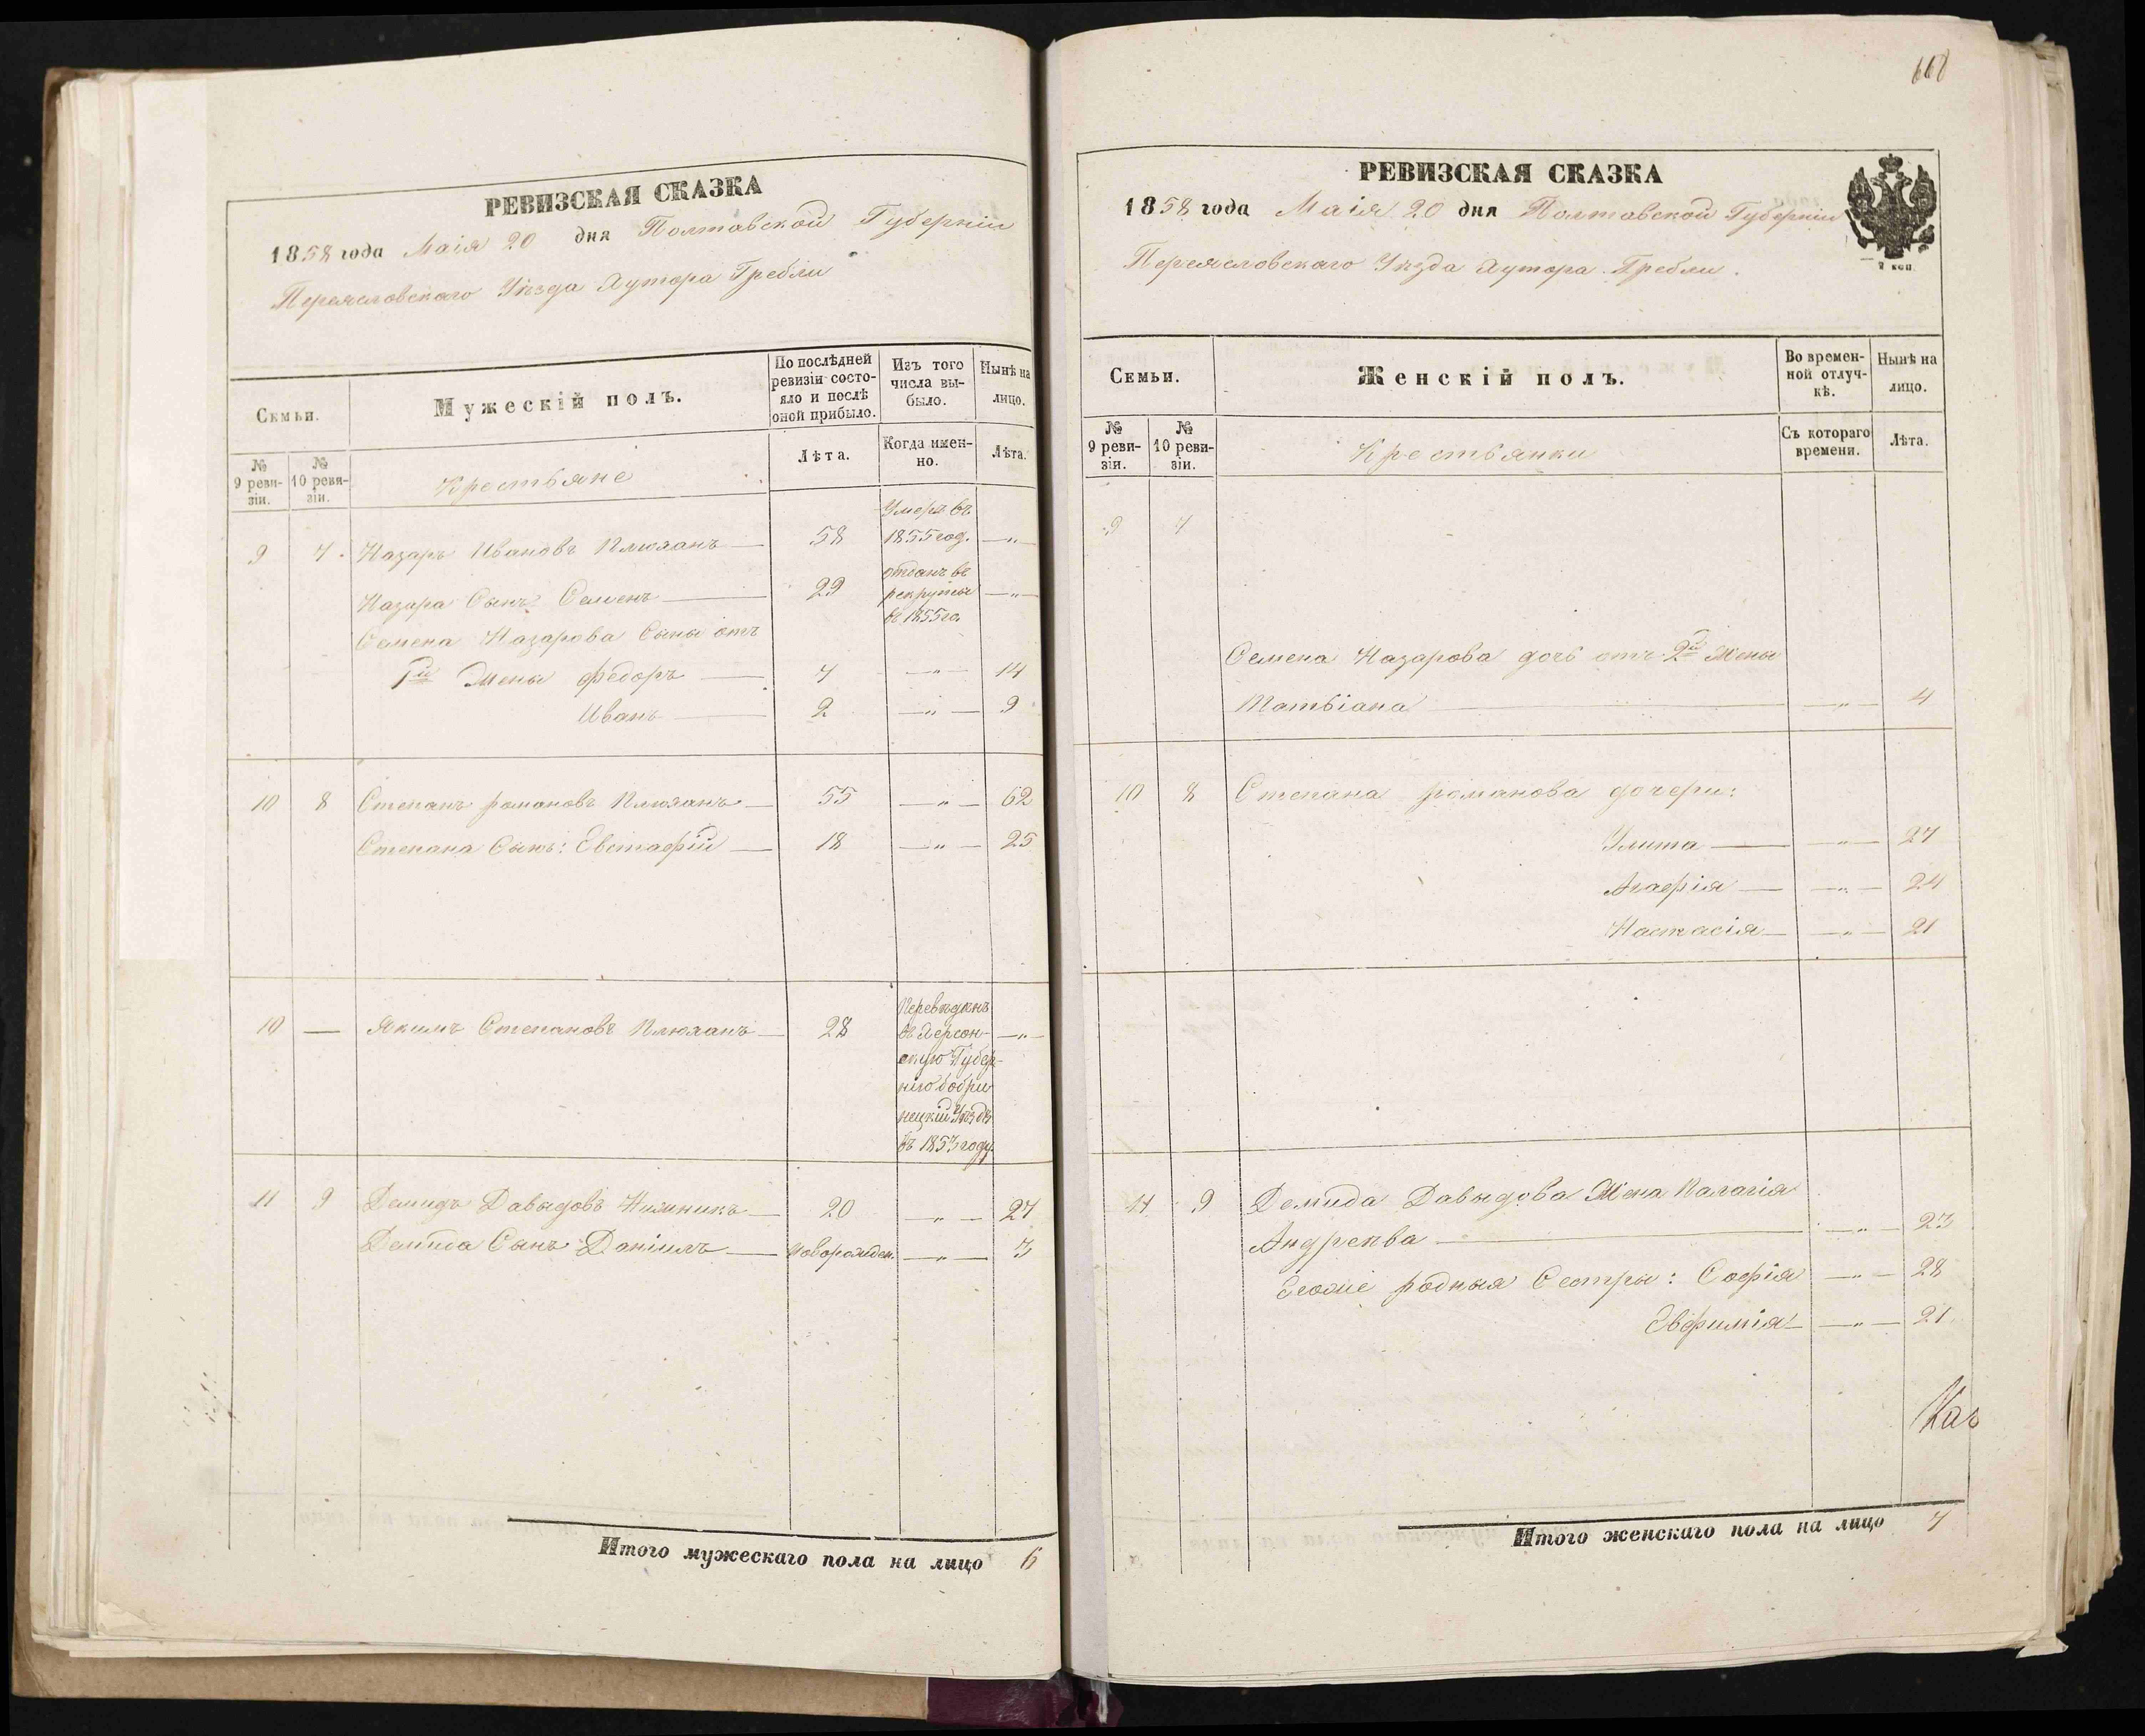 РЕВИЗСКАЯ СКАЗКА
1858 года Маія 20 дня Полтавской Губерніи
Переясловскаго Уѣзда Хутора Гребли
Семьи.
Мужескій полъ.
По послѣдней ревизіи состояло и послѣ оной прибыло.
Изъ того числа выбыло.
Нынѣ на лицо.
№ 9 ревизіи.
№ 10 ревизіи.
Крестьяне
Лѣта.
Когда именно.
Лѣта.
9 7. Назаръ Ивановъ Плюханъ — 58 Умеръ въ 1855 год. — „ —
Назара Сынъ Семенъ — 29 отданъ въ рекруты въ 1855 го. — „ —
Семена Назарова Сыны отъ
1й Жены Федоръ — 7 — „ — 14
Иванъ — 2 — „ — 9
10 8 Степанъ романовъ Плюханъ — 55 — „ — 62
Степана Сынъ: Евстафій — 18 — „ — 25
10 — Якимъ Степановъ Плюханъ — 28 Переведенъ въ Херсонскую Губернію бобринецкій Уѣздъ въ 1853 году. — „ —
11 9 Демидъ Давыдовъ — 20 — „ — 27
Демида Сынъ Даніилъ — новорожден. — „ — 3
Итого мужескаго пола на лицо 6
668
РЕВИЗСКАЯ СКАЗКА
1858 года Маія 20 дня Полтавской Губерніи
7 коп.
Переясловскаго Уѣзда Хутора Гребли.
Семьи.
Женскій полъ.
Во временной отлучкѣ.
Нынѣ на лицо.
№ 9 ревизіи.
№ 10 ревизіи.
Крестьянки
Съ котораго времени.
Лѣта.
9 7
Семена Назарова дочь отъ 2й Жены
Татьіана — — „ — 4
10 8 Степана романова дочери:
Улита — — „ — 27
Агафія — — „ — 24
Настасія — — „ — 21
11 9 Демида Давыдова Жена Палагія
Андреева — — „ — 23
родныя Сестры: Софія — „ — 28
Евфимія — — „ — 21.
Итого женскаго пола на лицо 7